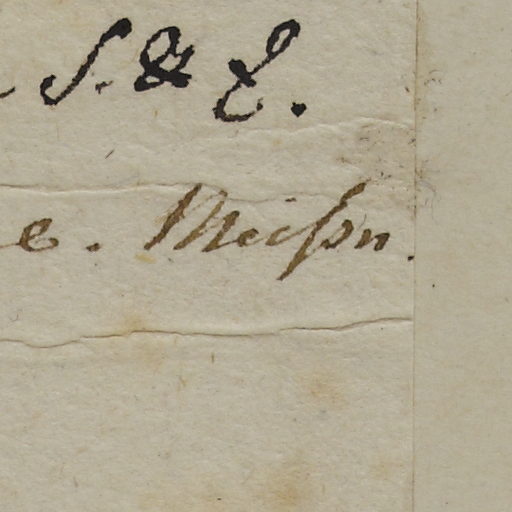 S. & Z.
e. Meißn.